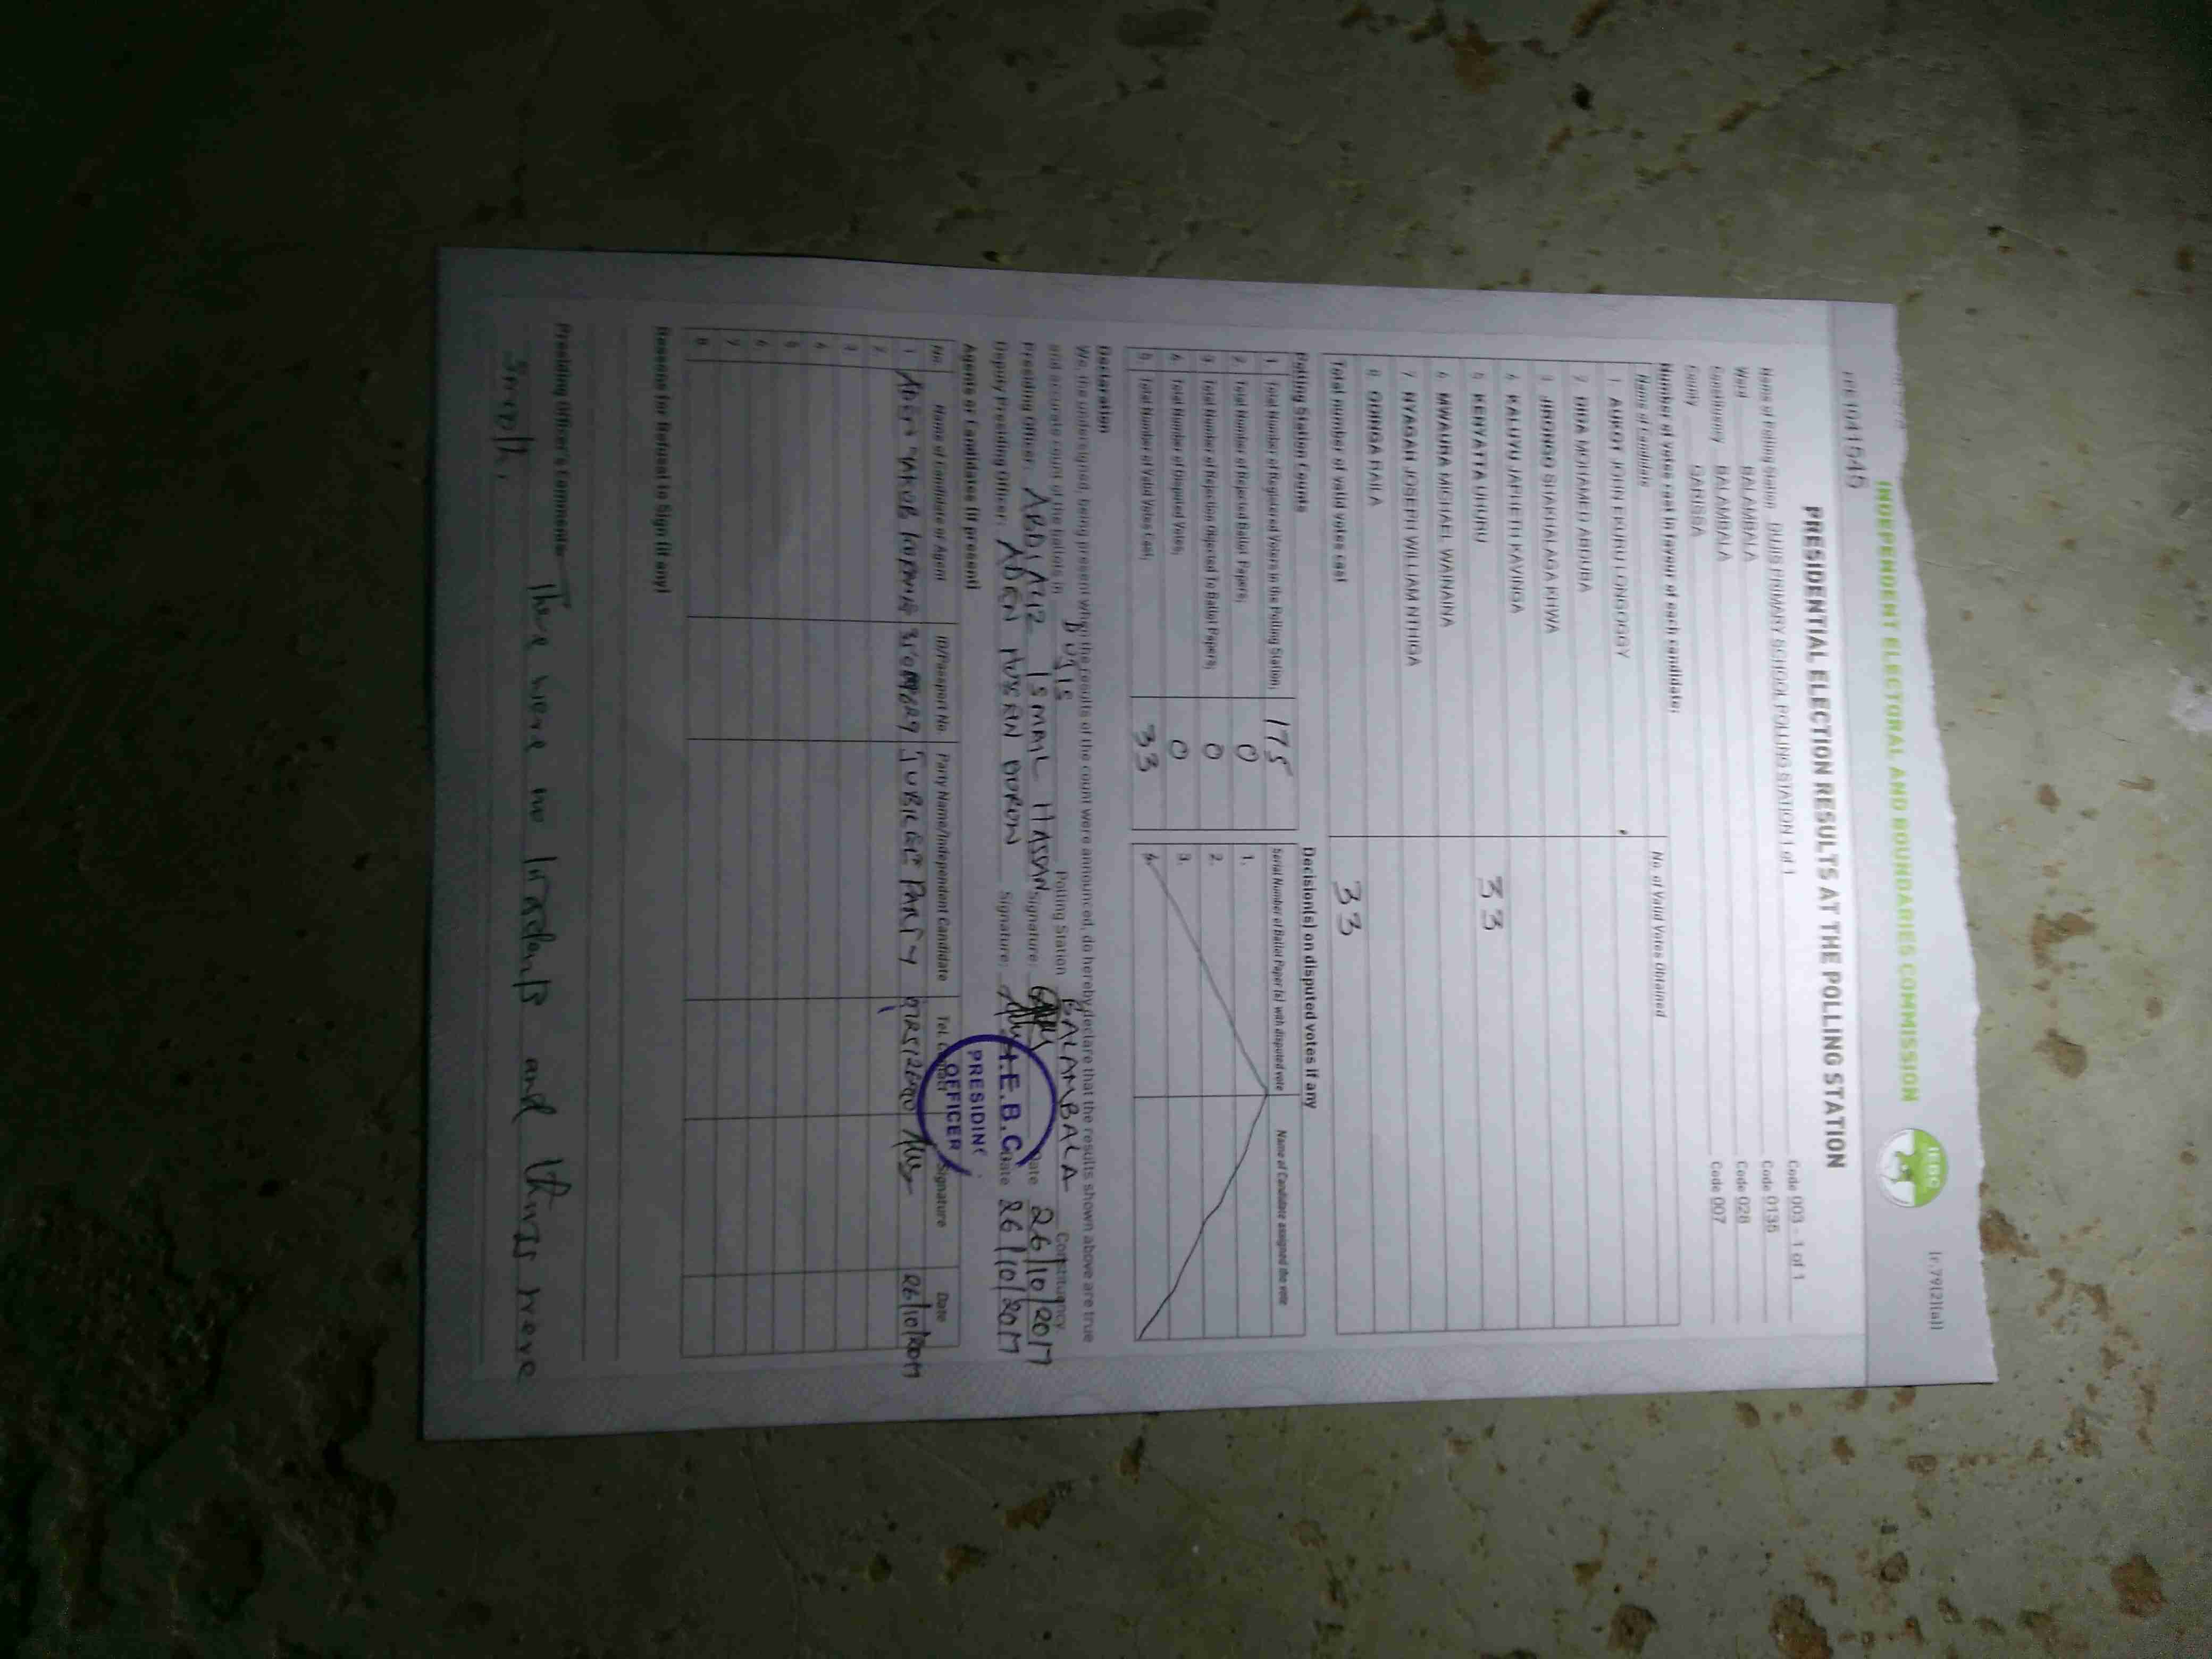 INDEPENDENT ELECTORAL AND BOUNDARIES COMMISSION
IEBC
(r.79(2)(a))
PRESIDENTIAL ELECTION RESULTS AT THE POLLING STATION
Name of Polling Station DUJIS PRIMARY SCHOOL POLLING STATION 1 of 1 Code 003 - 1 of 1
Ward BALAMBALA Code 0135
Constituency BALAMBALA Code 028
County GARISSA Code 007
Number of votes cast in favour of each candidate:
Name of Candidate No. of Valid Votes Obtained
1. AUKOT JOHN EKURU LONGOGGY
2 DIDA MOHAMED ABDUBA
3 JIRONGO SHAKHALAGA KHWA
4 KALUYU JAPHETH KAVINGA
5 KENYATTA UHURU 33
6 MWAURA MICHAEL WAINAINA
7 NYAGAH JOSEPH WILLIAM NTHIGA
8 ODINGA RAILA
Total number of valid votes cast 33
Polling Station Counts
1. Total Number of Registered Voters in the Polling Station; 175
2. Total Number of Rejected Ballot Papers; 0
3. Total Number of Rejection Objected To Ballot Papers; 0
4. Total Number of Disputed Votes; 0
5. Total Number of Valid Votes Cast; 33
Decision(s) on disputed votes if any
Serial Number of Ballot Paper (s) with disputed vote Name of Candidate assigned the vote
1.
2.
3.
4.
Declaration
We, the undersigned, being present when the results of the count were announced, do hereby declare that the results shown above are true
and accurate count of the ballots in DUJIS Polling Station BALAMBALA Constituency
Presiding Officer: ABDIAZIZ ISMAIL HASSAN Signature: Date 26/10/2017
Deputy Presiding Officer: ADEN Signature: Date 26/10/2017
I.E.B.C.
PRESIDING
OFFICER
Agents or Candidates (if present)
No. Name of Candidate or Agent ID/Passport No. Party Name/Independent Candidate Tel. Contact Signature Date
1 JUBILEE PARTY 26/10/2017
2
3
4
5
6
7
8
Reasons for Refusal to Sign (if any)
Presiding Officer's Comments: The were no incidents and things were